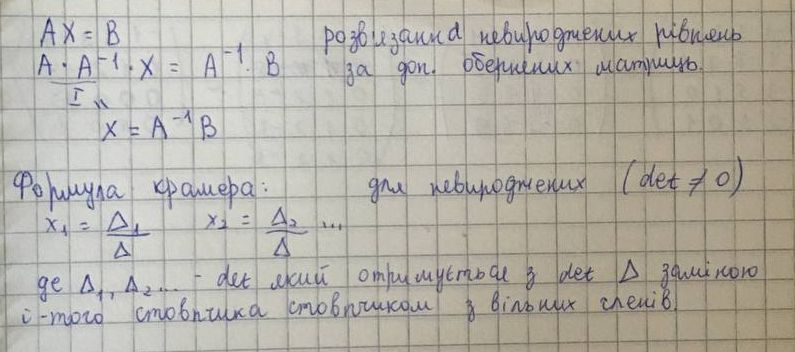 AX = B розвязання невироджених рівнянь
A · A⁻¹ · X = A⁻¹ · B за доп. обернених матриць.
I
X = A⁻¹B
Формула крамера: для невироджених (det ≠ 0)
x₁ = Δ₁/Δ x₂ = Δ₂/Δ ...
де Δ₁, Δ₂... - det який отримується з det Δ заміною
і-того стовпчика стовпчиком з вільних членів.